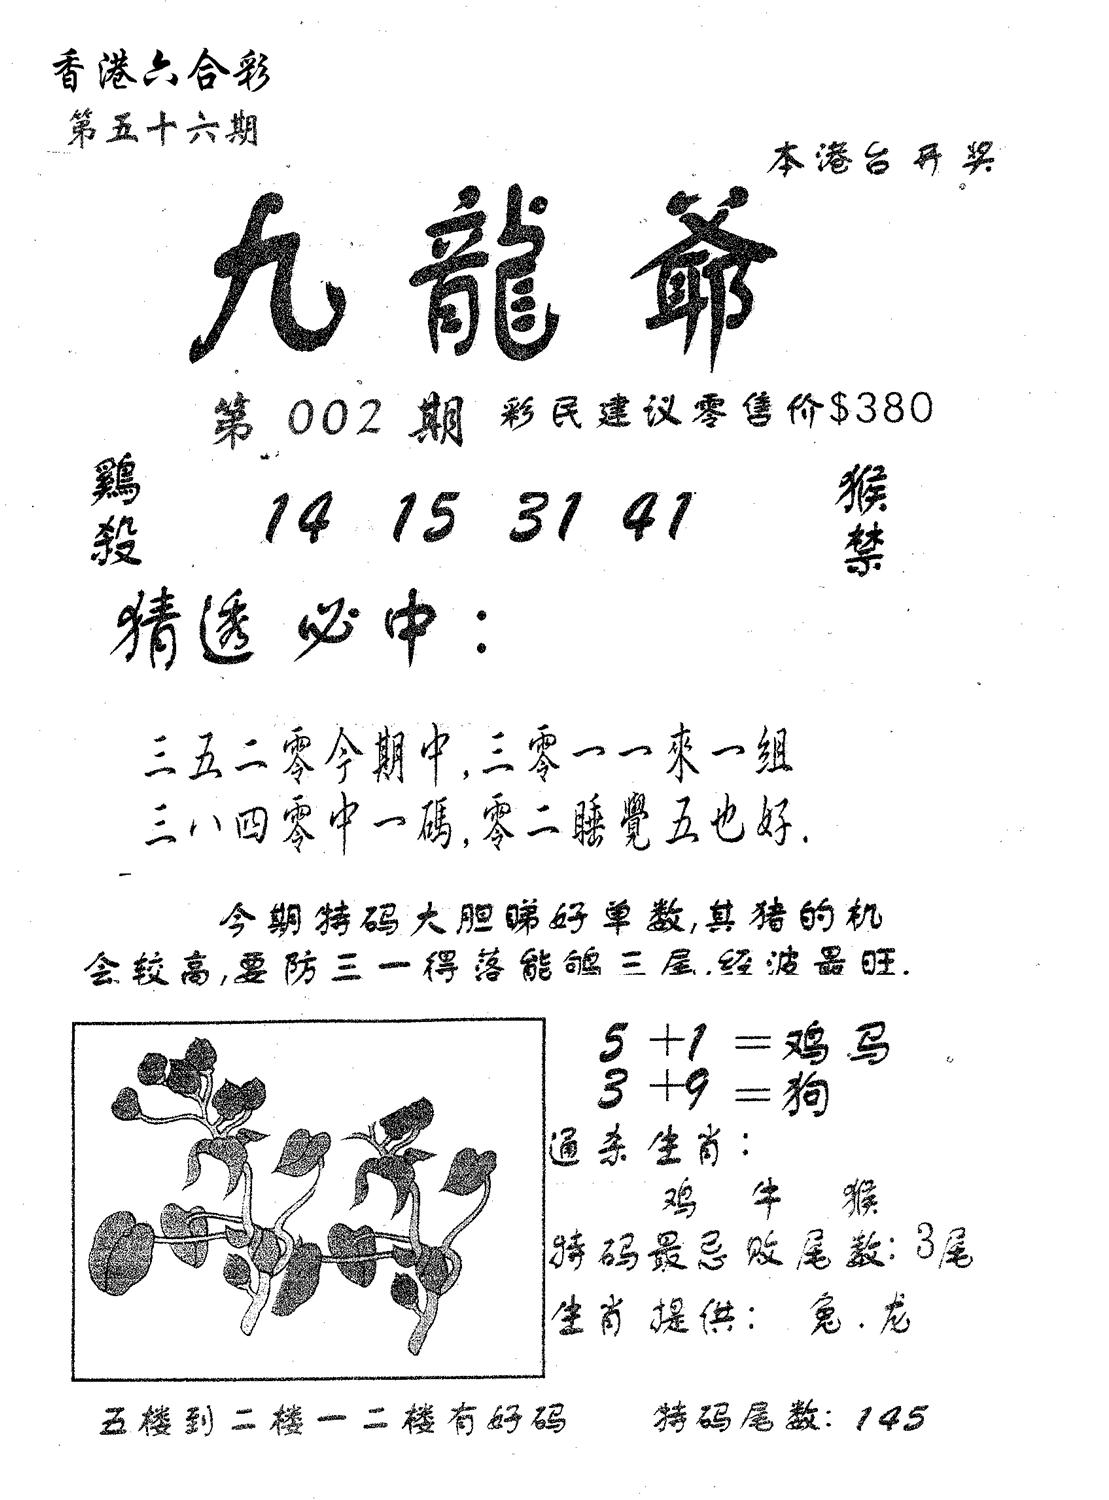 香港六合彩
第五十六期
本港台开奖
九龍爺
第 002 期 彩民建议零售价$380
鷄殺 14 15 31 41 猴禁
猜透必中：
三五二零今期中,三零一一來一組
三八四零中一碼,零二睡覺五也好.
今期特码大胆睇好单数,其猪的机
会较高,要防三一得落能鸲三尾.经波最旺.
5+1=鸡马
3+9=狗
通杀生肖：
鸡 牛 猴
特码最忌败尾数：3尾
生肖提供： 兔.龙
五楼到二楼一二楼有好码 特码尾数：145